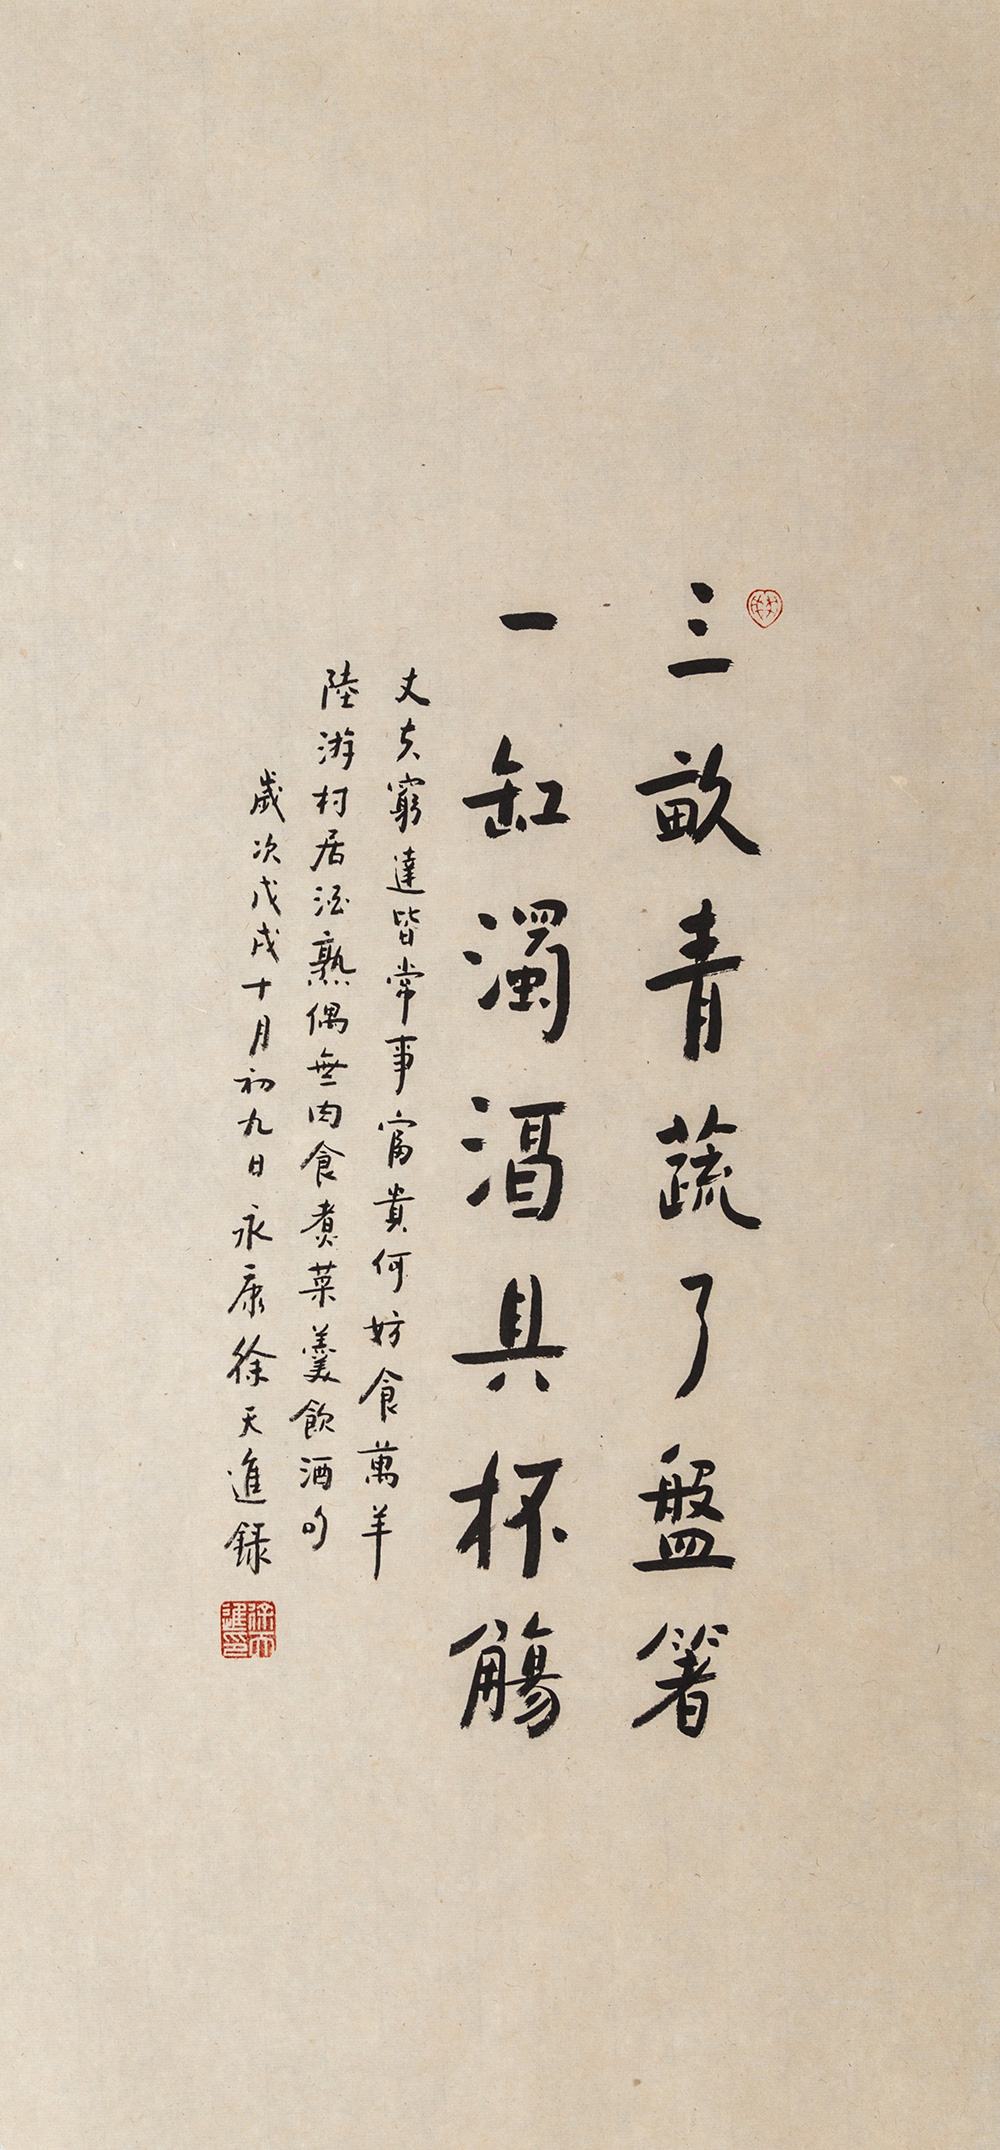 三畝青蔬了盤箸
一缸濁酒具杯觴
丈夫窮達皆常事富貴何妨食萬羊
陸游村居酒熟偶無肉食煮菜羹飲酒句
歲次戊戌十月初九日永康徐天進録
徐天進印